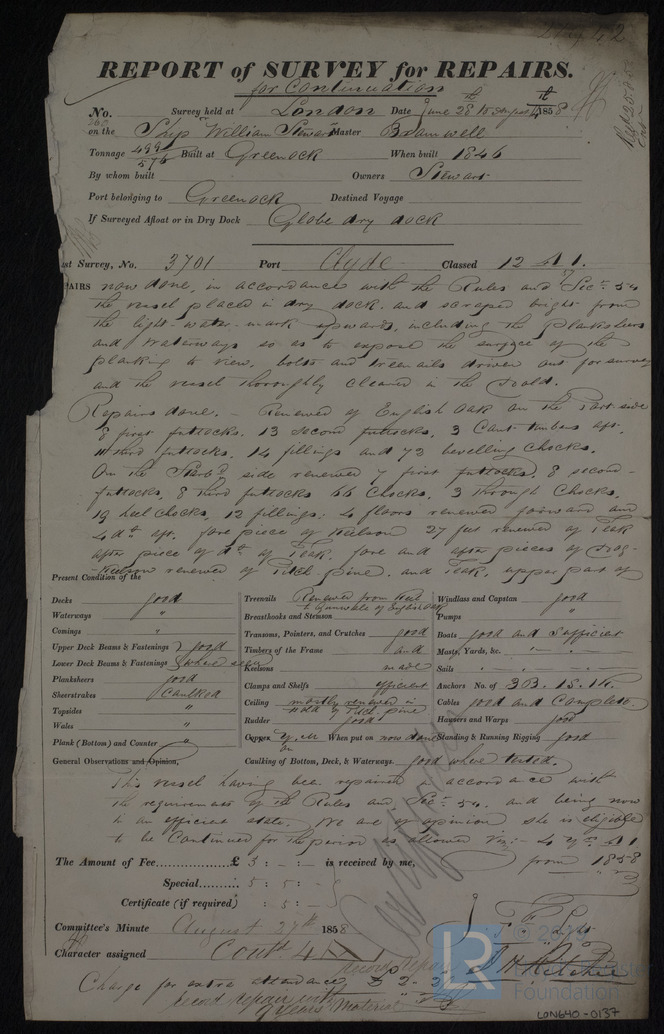 REPORT of SURVEY for REPAIRS.
for Continuation
No. 260 Survey held at London Date June 28 to August 1858
on the Ship "William Stewart" Master Bramwell
Tonnage 499/576 Built at Greenock When built 1846
By whom built Owners Stewart
Port belonging to Greenock Destined Voyage
If Surveyed Afloat or in Dry Dock Globe dry dock
st Survey, No. 3701 Port Clyde Classed 12 A 1.
AIRS now done, in accordance with the Rules and Sec: 54
the vessel placed in dry dock. and scraped bright from
the light-water-mark upwards, including the Planksheers
and Waterways so as to expose the surface of the
planking to view, bolts and treenails driven out for survey
and the vessel thoroughly cleaned in the hold.
Repairs done. - Renewed of English Oak on the Port side
8 first futtocks. 13 second futtocks, 3 Cant timbers aft.
11 third futtocks. 14 fillings and 73 bevelling chocks.
On the Starbd side renewed 7 first futtocks, 8 second
futtocks, 8 third futtocks 66 Chocks, 3 through Chocks,
19 heel chocks, 12 fillings; 4 floors renewed forward and
4 do aft. fore piece of Keelson 27 feet renewed of Teak
after piece of do of Teak, fore and after pieces of
Keelson renewed of Pitch pine. and Teak, upper part of
Present Condition of the
Decks good
Waterways "
Comings "
Upper Deck Beams & Fastenings good
Lower Deck Beams & Fastenings where seen
Planksheers good
Sheerstrakes Caulked
Topsides "
Wales "
Plank (Bottom) and Counter "
Treenails Renewed from Keel to Gunwale of English Oak
Breasthooks and Stemson
Transoms, Pointers, and Crutches good
Timbers of the Frame and
Keelsons made
Clamps and Shelfs efficient
Ceiling mostly renewed in Hold of Pitch pine
Rudder good
Copper Y. M. When put on now done
Windlass and Capstan good
Pumps "
Boats good and Sufficient
Masts, Yards, &c. "
Sails "
Anchors No. of 3B. 1S. 1K.
Cables good and Complete.
Hausers and Warps good
Standing & Running Rigging good
General Observations and Opinion, Caulking of Bottom, Deck, & Waterways good where tested.
This vessel having been repaired in accordance with
the requirements of the Rules and Sec: 54. and being now
in an efficient state. We are of opinion she is eligible
to be Continued for the period as allowed viz:- 4 yrs A1
from 1858
The Amount of Fee £ 3 : - : - is received by me,
Special 5 : 5 : -
Certificate (if required) : 5 : -
Committee's Minute August 27th 1858
Character assigned Contd 4 A1
J H Ritchie
Charge for extra attendance £ 2 - 2
record repair with
years material
© 20
LR
Foundation
LON640-0137